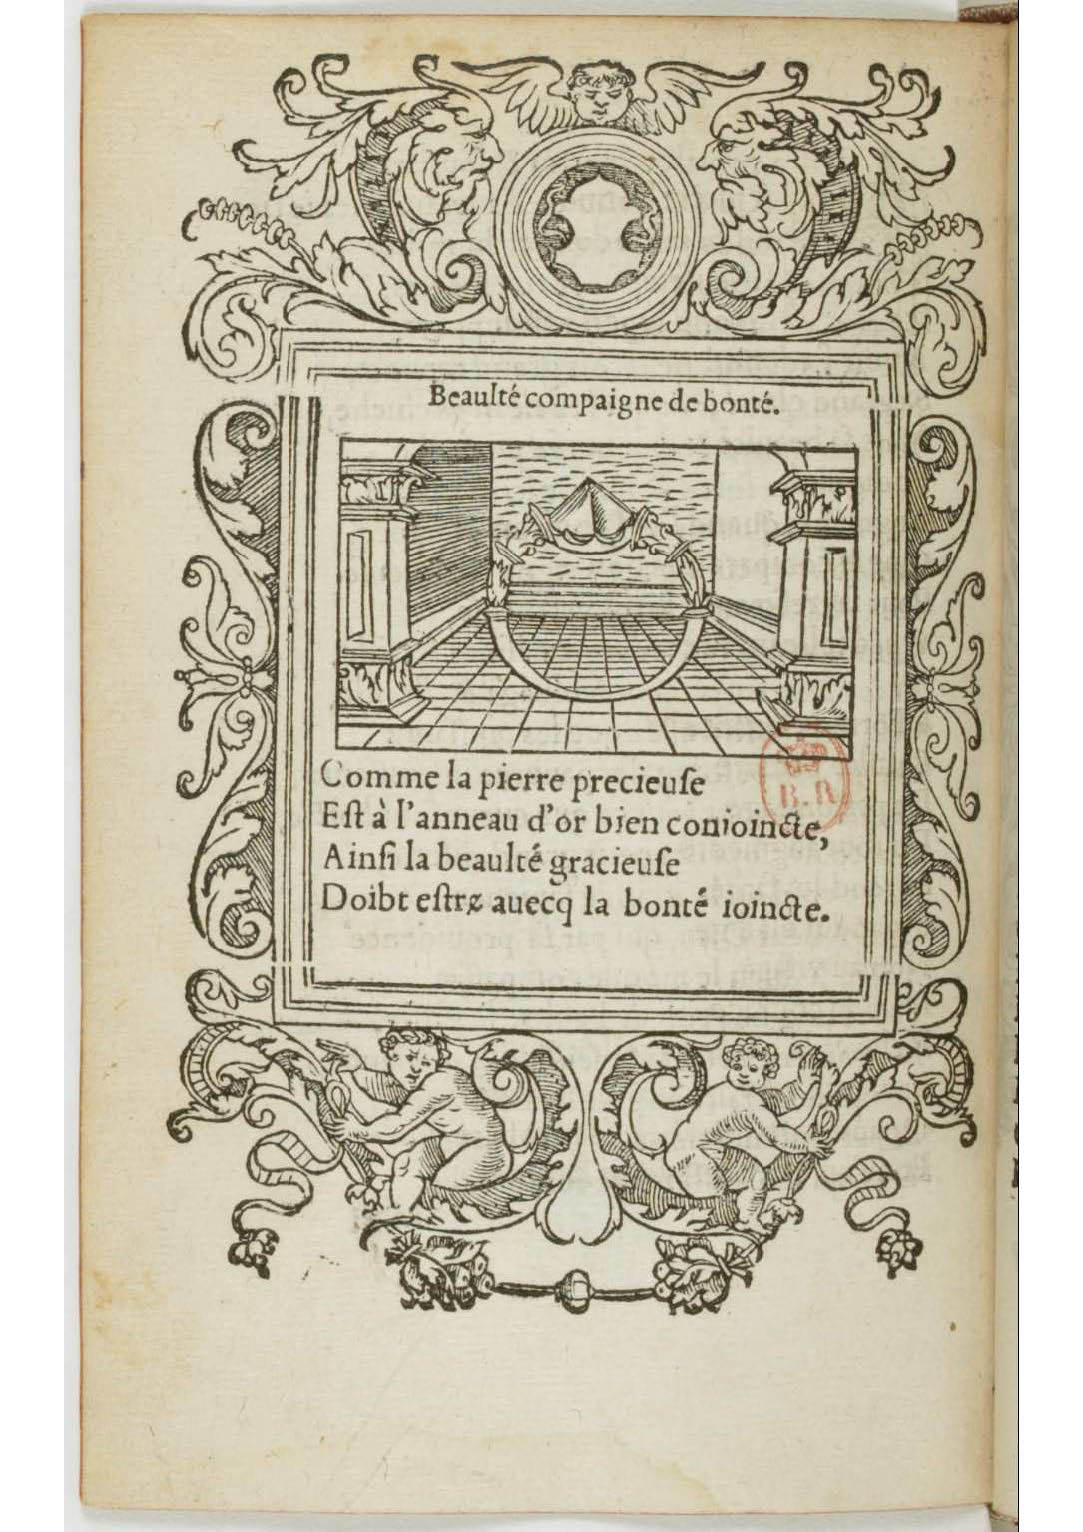 Beaulté compaigne de bonté.
Comme la pierre precieuſe
Eſt à l'anneau d'or bien conioincte,
Ainſi la beaulté gracieuſe
Doibt eſtre auecq la bonté ioincte.
B. R